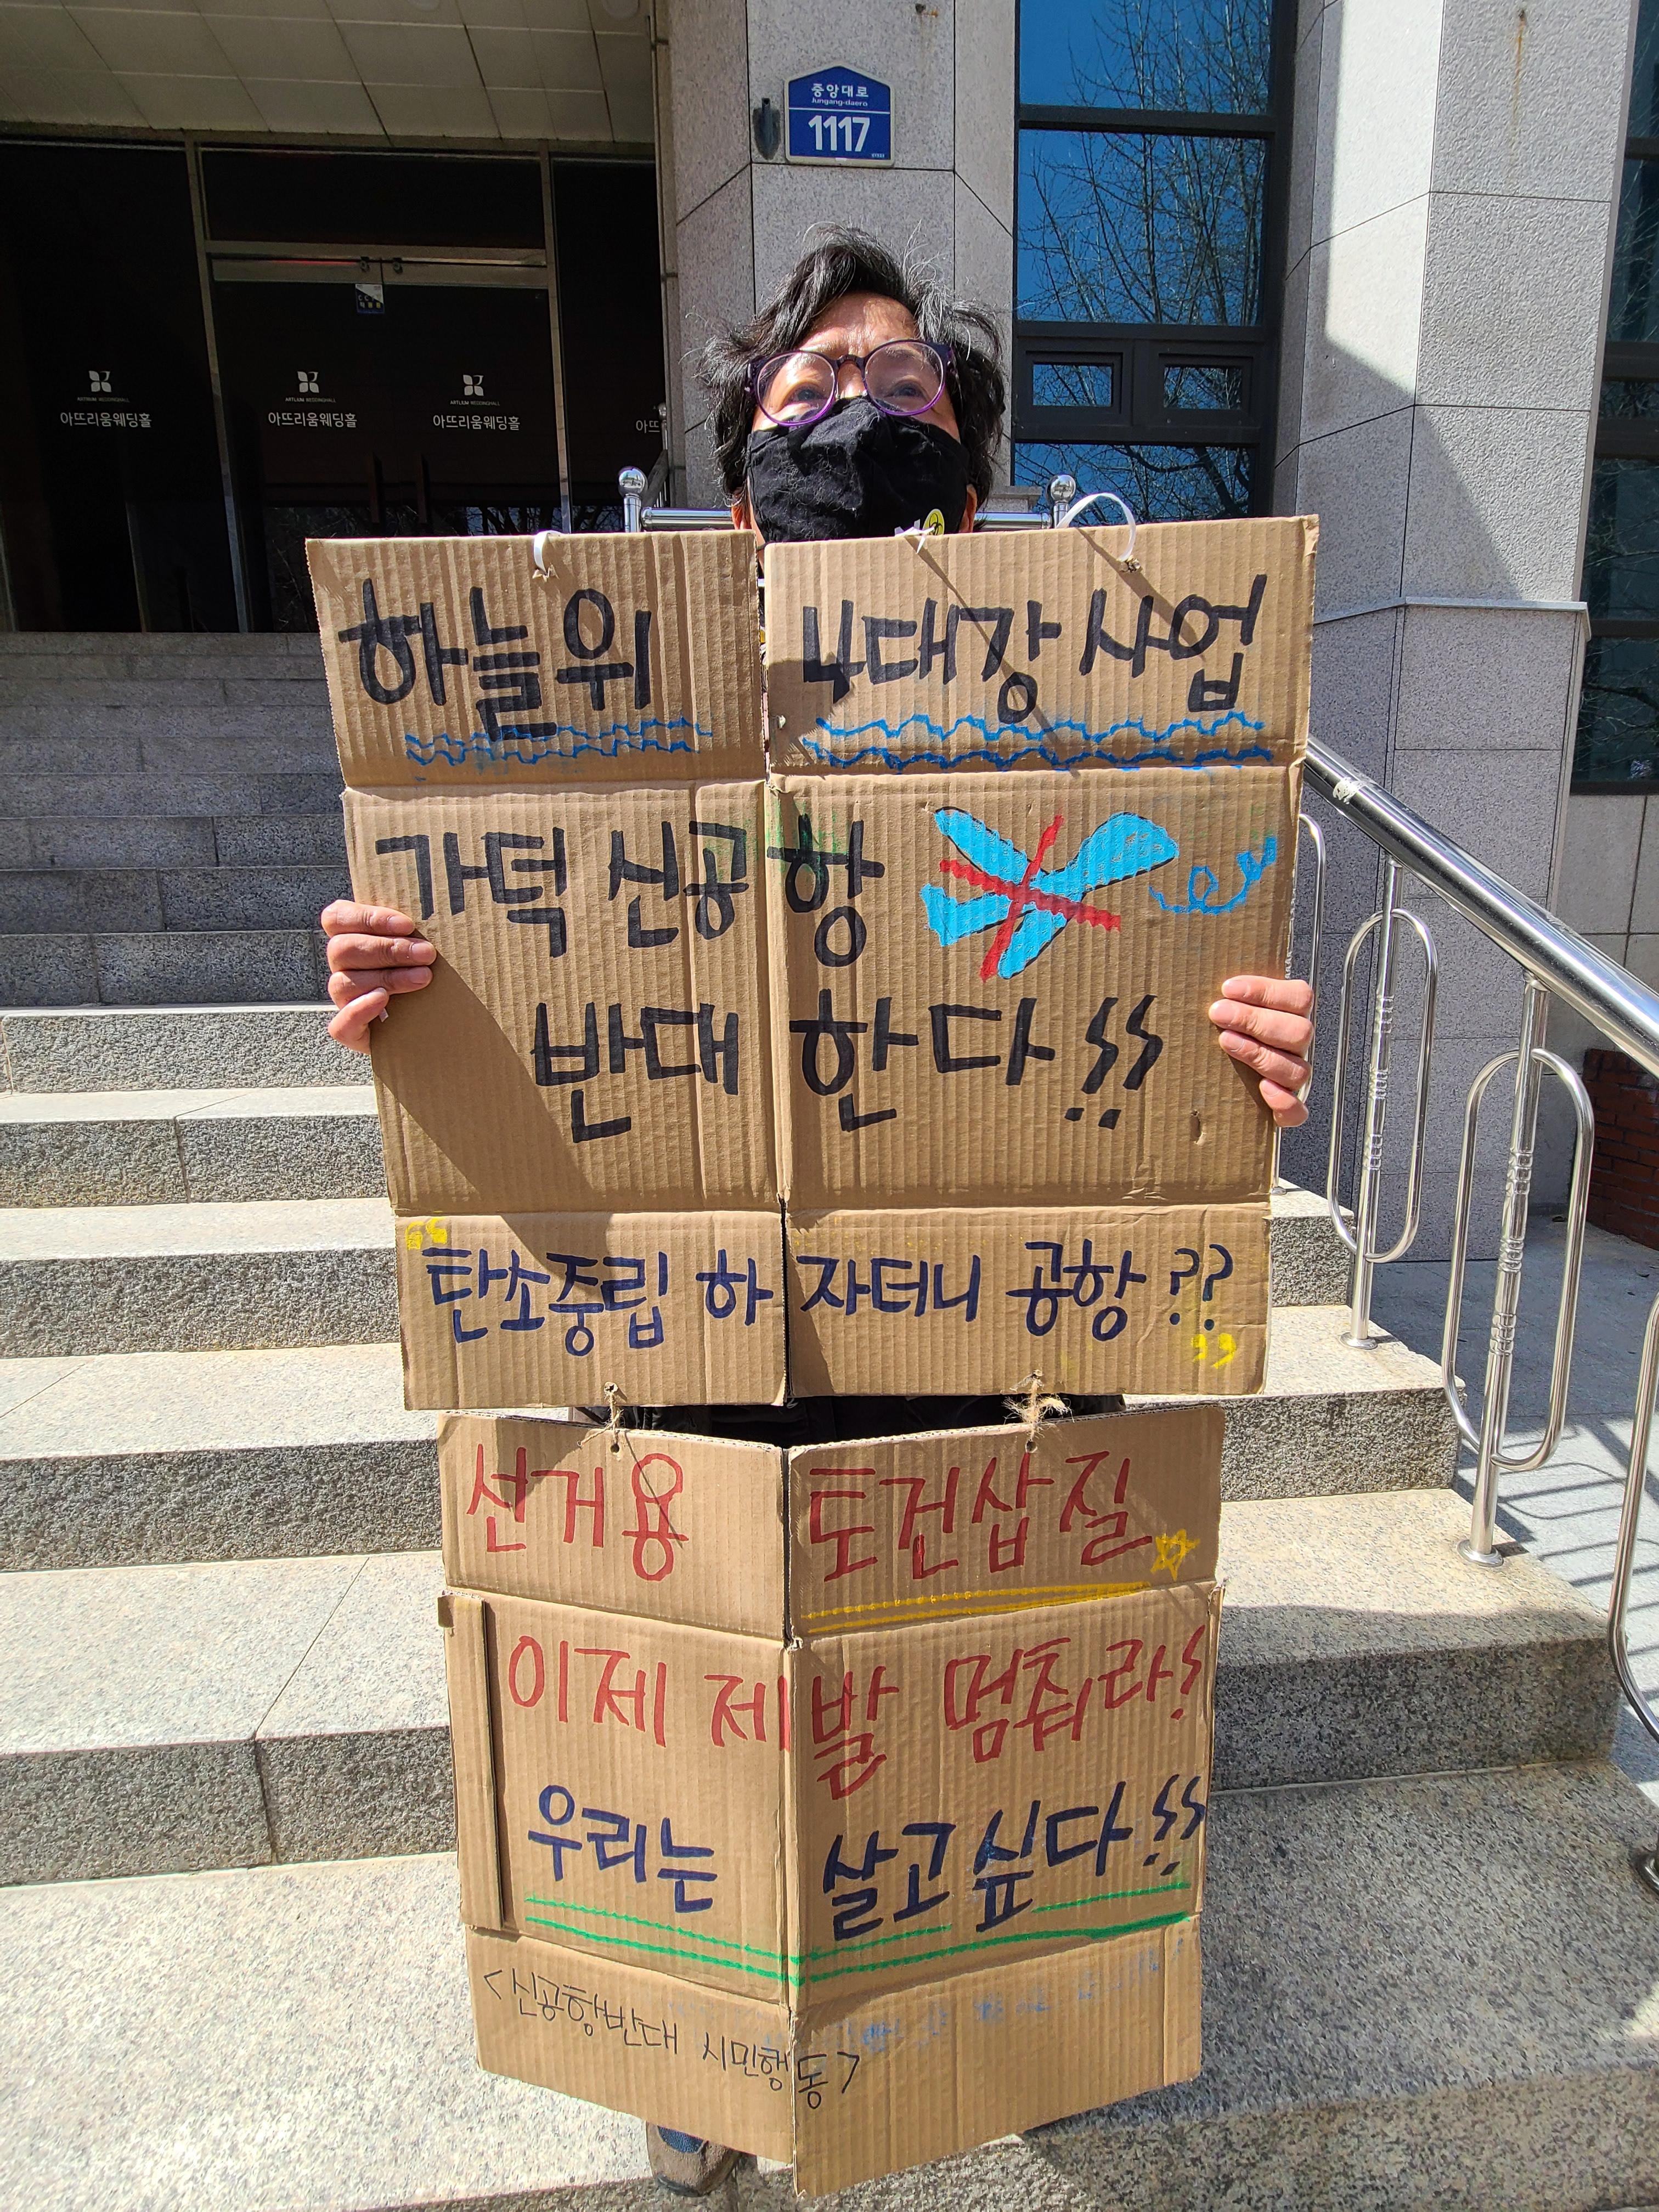 중앙대로
Jungang-daero
1117
아뜨리움웨딩홀
아뜨리움웨딩홀
아뜨리움웨딩홀
아뜨
하늘위 4대강 사업
가덕 신공항
반대 한다!!
“탄소중립 하자더니 공항??”
선거용 토건삽질
이제 제발 멈춰라!
우리는 살고싶다!!
<신공항반대 시민행동>